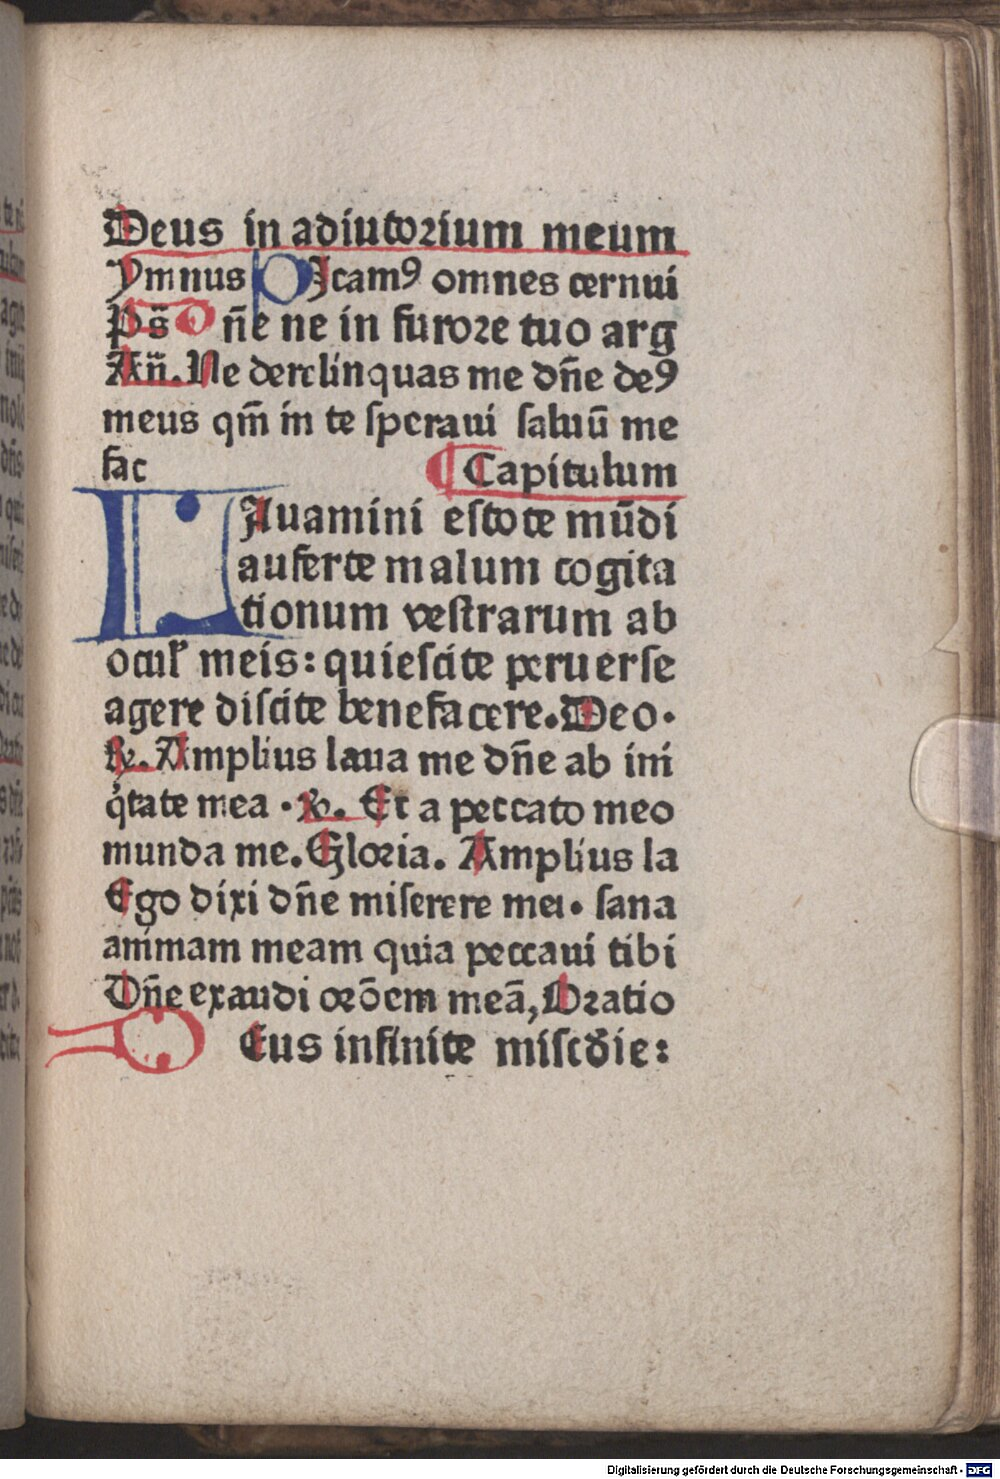 Deus in adiutorium meum
Ymnus DJcamꝰ omnes cernui
Ps̄ Dn̄e ne in furore tuo arg
An̄. Ne derelinquas me dn̄e deꝰ
meus qm̄ in te ſperaui ſaluū me
fac ¶ Capitulum
LAuamini eſtote mūdi
auferte malum cogita
tionum veſtrarum ab
oculꝭ meis: quieſcite peruerſe
agere diſcite benefacere. Deo.
℟. Amplius laua me dn̄e ab ini
q̇tate mea . ℟. Et a peccato meo
munda me. Gloria. Amplius la
Ego dixi dn̄e miſerere mei. ſana
animam meam quia peccaui tibi
Dn̄e exaudi orōem meā, Oratio
DEus infinite miſcd̄ie:
Digitalisierung gefördert durch die Deutsche Forschungsgemeinschaft - DFG